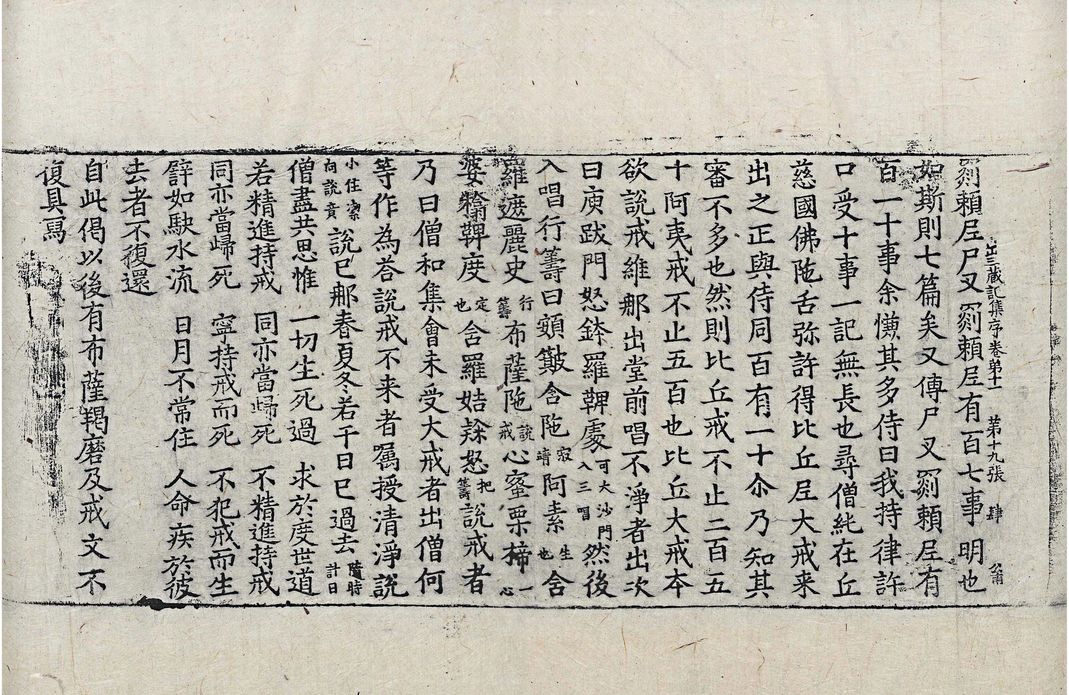 剡賴尼尸叉剡賴尼有百七事明也
出三藏記集序卷第十一 第十九張 肆
如斯則七篇矣又傳尸叉剡賴尼有
百一十事余慊其多侍曰我持律許
口受十事一記無長也尋僧純在丘
慈國佛陁舌弥許得比丘尼大戒来
出之正與侍同百有一十尒乃知其
審不多也然則比丘戒不止二百五
十阿夷戒不止五百也比丘大戒本
欲說戒維那出堂前唱不淨者出次
曰庾跋門怒鉢羅鞞處可大沙門入三唱然後
入唱行籌曰頞簸含陁寂靜阿素生也舍
羅遮麗史行籌布薩陁說戒心蜜栗楴一心
婆䩭鞞度定也舍羅姞隸怒把籌說戒者
乃曰僧和集會未受大戒者出僧何
等作為荅說戒不来者囑授清淨說
小住潔向說竟說已那春夏冬若干日巳過去隨時計日
僧盡共思惟 一切生死過 求於度世道
若精進持戒 同亦當歸死 不精進持戒
同亦當歸死 寧持戒而死 不犯戒而生
譬如駛水流 日月不常住 人命疾於彼
去者不復還
自此偈以後有布薩羯磨及戒文不
復具寫